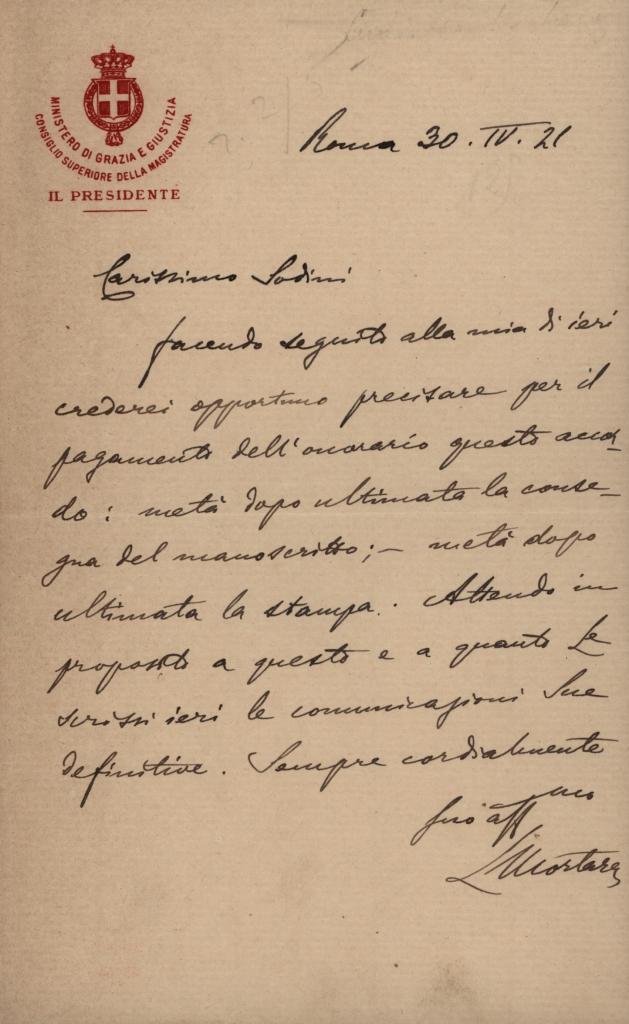 MINISTERO DI GRAZIA E GIUSTIZIA
CONSIGLIO SUPERIORE DELLA MAGISTRATURA
IL PRESIDENTE
Roma 30. IV. 21
Carissimo Sodini
facendo seguito alla mia di ieri
crederei opportuno precisare per il
pagamento dell'onorario questo accor-
do: metà dopo ultimata la conse-
gna del manoscritto; — metà dopo
ultimata la stampa. Attendo in
proposito a questo e a quanto Le
scrissi ieri le comunicazioni Sue
definitive. Sempre cordialmente
Suo aff mo
L Mortara